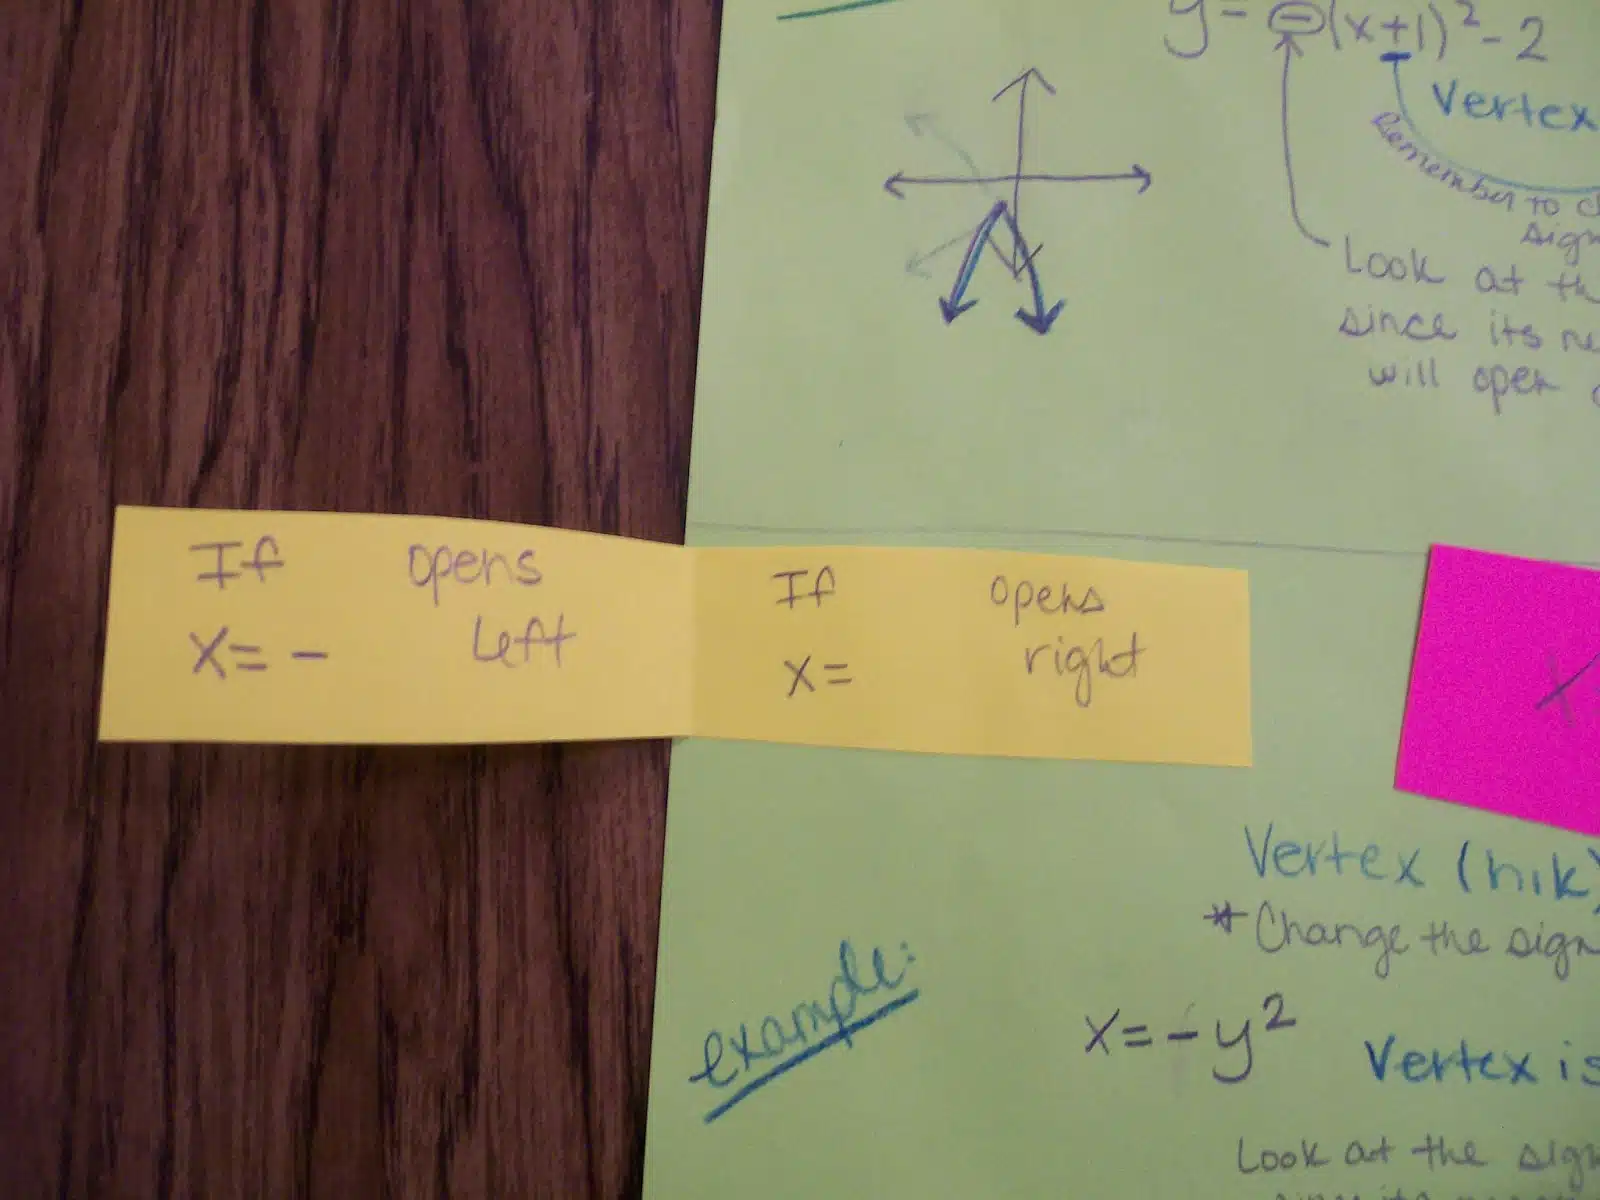 y = -(x+1)² - 2
Vertex
Remember to
Look at
since its
will open
If opens
x= - Left
If opens
x= right
x
Vertex (h,k)
*Change the sign
example:
x = -y²
Vertex is
Look at the sign